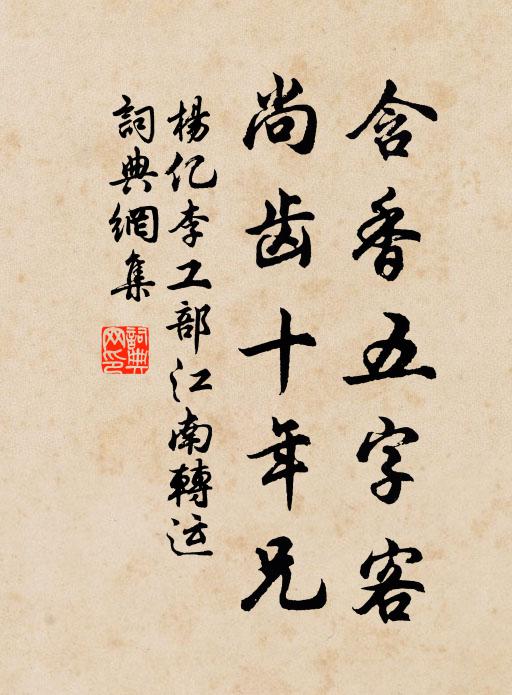 含香五字客
尚齿十年兄
楊亿李工部江南轉运
詞典網集
詞典网印